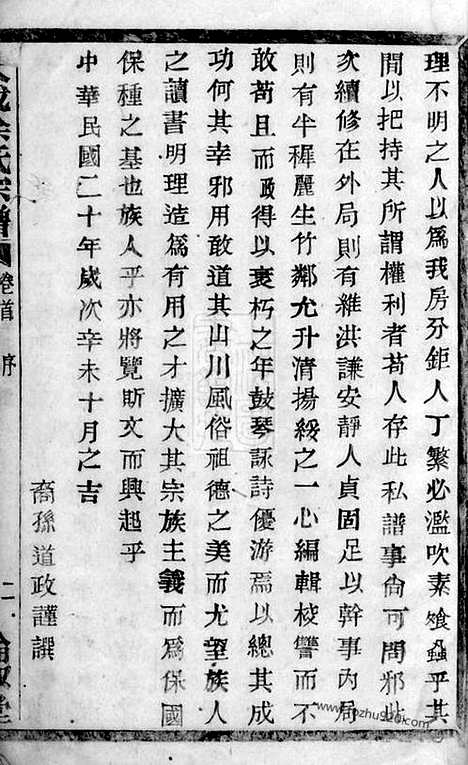 理不明之人以爲我房分鉅人丁繁必濫吹素飧蝨乎其
間以把持其所謂權利者苟人存此私譜事尙可問邪此
次續修在外局則有維洪謙安靜人貞固足以幹事內局
則有半穉麗生竹鄰允升清揚綏之一心編輯校讐而不
敢苟且而政得以衰朽之年鼓琴詠詩優游焉以總其成
功何其幸邪用敢道其山川風俗祖德之美而尤望族人
之讀書明理造爲有用之才擴大其宗族主義而爲保國
保種之基也族人乎亦將覽斯文而興起乎
中華民國二十年歲次辛未十月之吉
裔孫道政謹譔
氏宗譜
卷首 序
二
堂
www.pzhu920.com